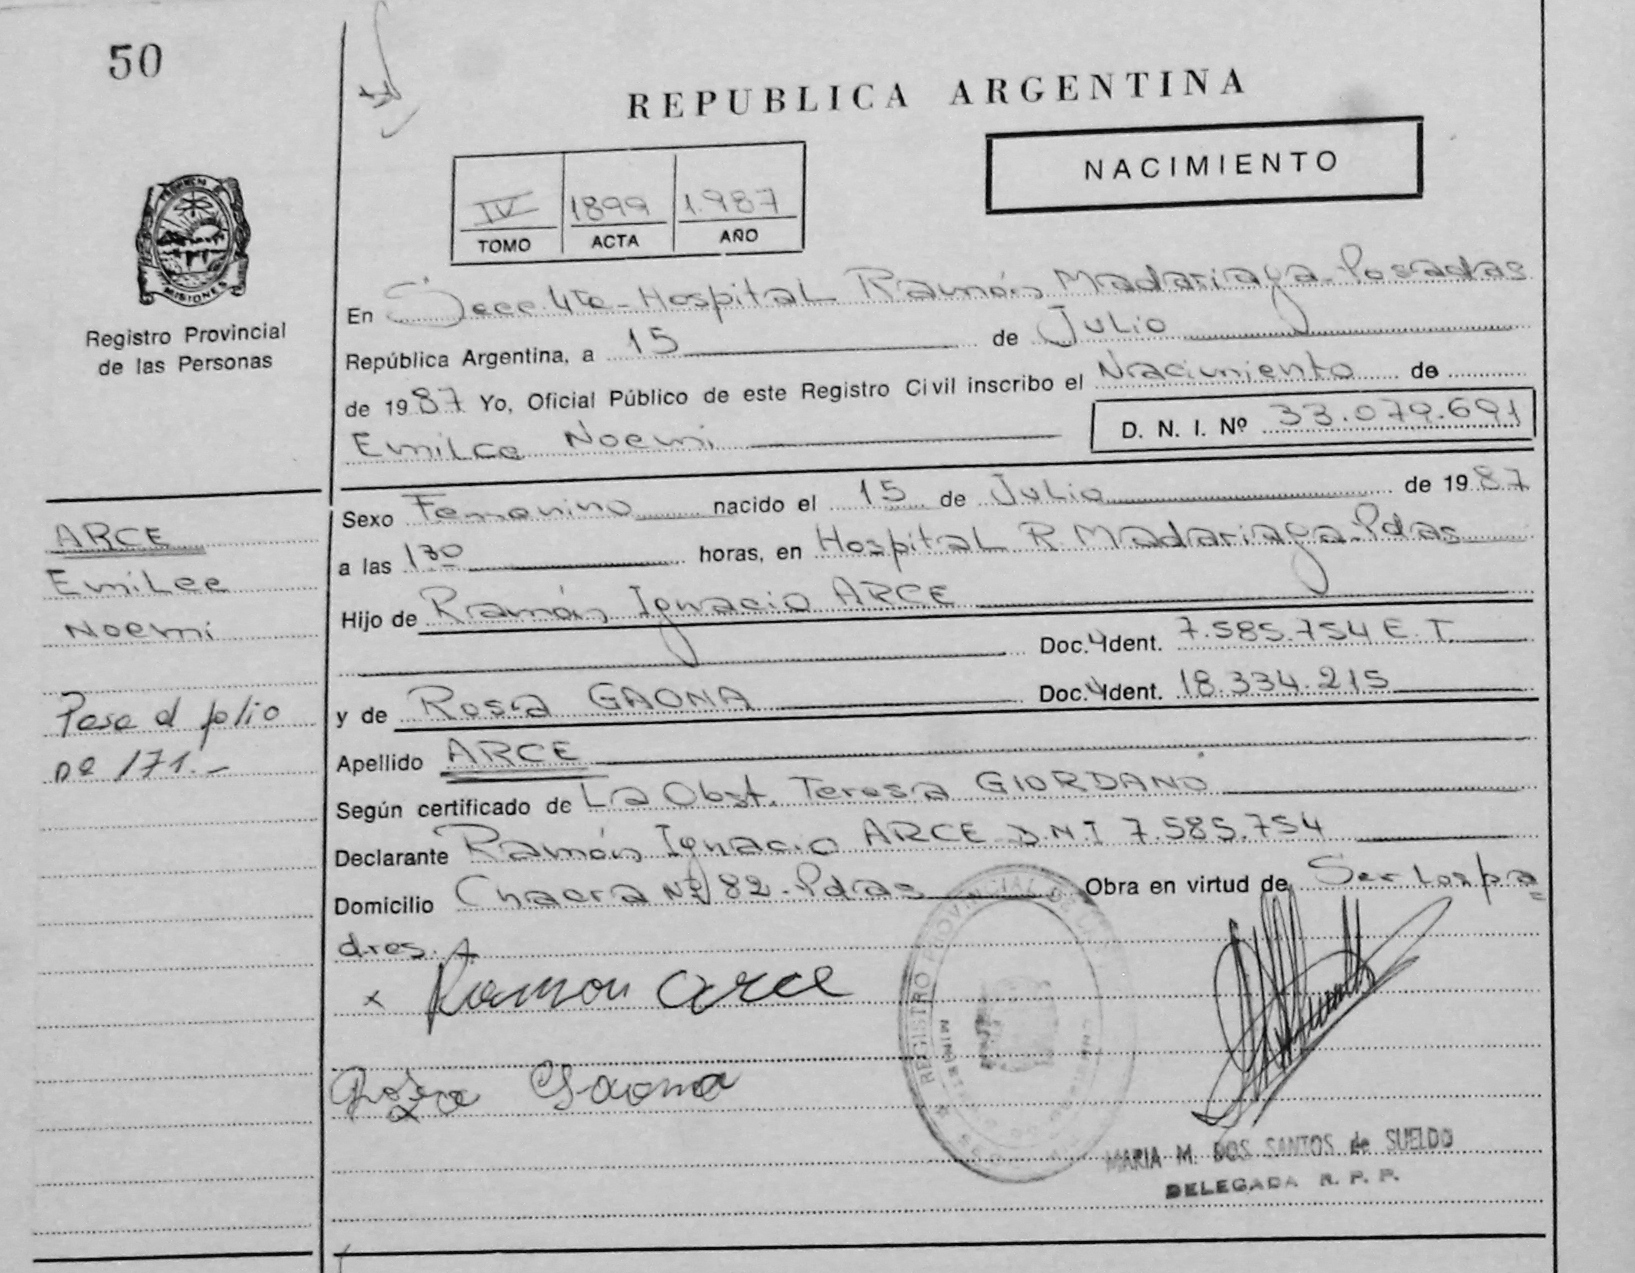 50
REPUBLICA ARGENTINA
NACIMIENTO
IV 1899 1.987
TOMO ACTA AÑO
MISIONES
Registro Provincial
de las Personas
En Secc. 4ta - Hospital Ramón Madariaga - Posadas
República Argentina, a 15 de Julio
de 1987 Yo, Oficial Público de este Registro Civil inscribo el Nacimiento de
Emilce Noemi D. N. I. Nº 33.079.691
Sexo Femenino nacido el 15 de Julio de 1987
a las 1 30 horas, en Hospital R. Madariaga - Pdas
Hijo de Ramón Ignacio ARCE
Doc. Ident. 7.585.754 E.T.
y de Rosa GAONA Doc. Ident. 18.334.215
Apellido ARCE
Según certificado de La Obst. Teresa GIORDANO
Declarante Ramón Ignacio ARCE D.N.I 7.585.754
Domicilio Chacra Nº 82 - Pdas Obra en virtud de Ser Los pa=
dres.
x Ramon arce
Rosa Gaona
x
ARCE
Emilce
Noemi
Pasa al folio
nº 171.-
REGISTRO PROVINCIAL DE LAS
MARIA M. DOS SANTOS de SUELDO
DELEGADA R. P. P.